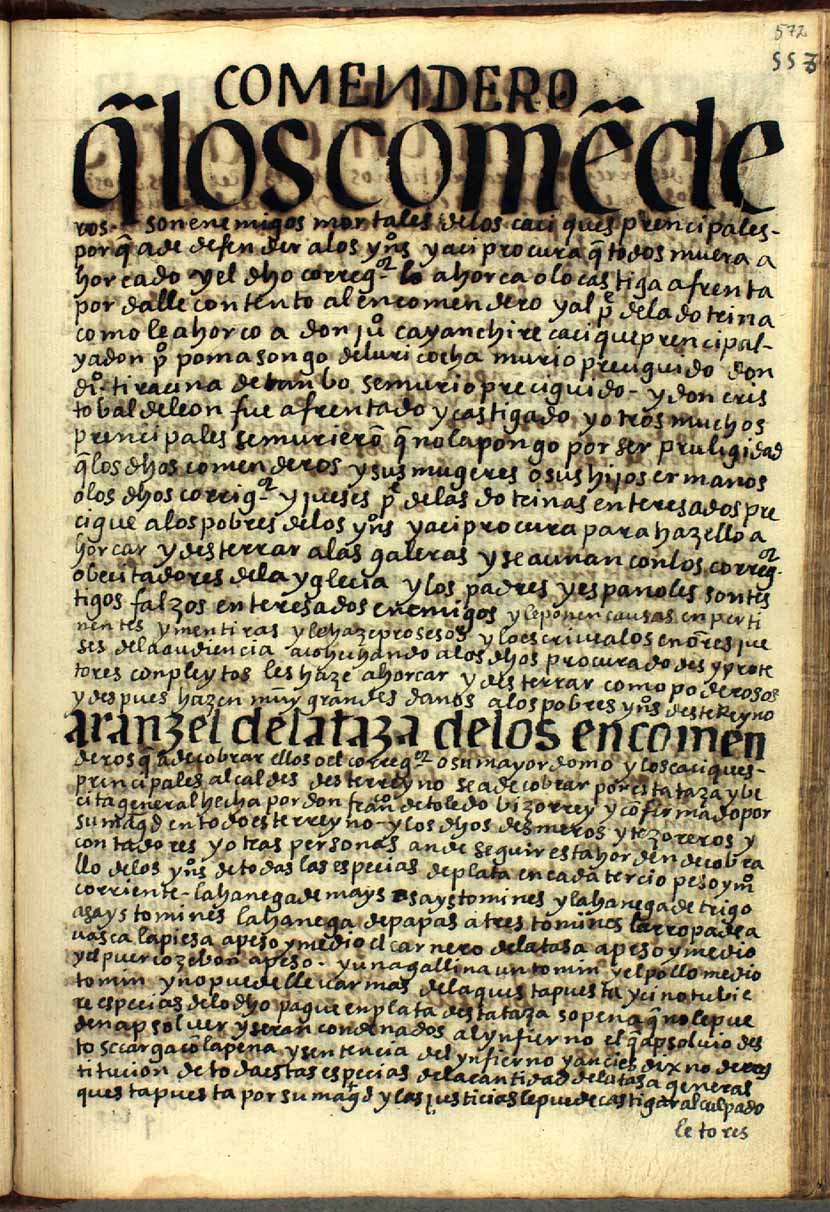 572
553
COMENDERO
q̃ los comẽde
ros - son enemigos mortales de los caciques prencipales -
porq̃ a de defender a los yn̄s y aci procura q̃ todos muera a
horcado - y el dho corregor lo ahorca o lo castiga afrenta
por dalle contento al encomendero y al pe de la dotrina
como le ahorco a don juo cayanchire cacique prencipal -
y a don po poma songo de luricocha murio preciguido don
dio tiracina de tanbo se murio preciguido - y don cris
tobal de leon fue afrentado y castigado y otros muchos
prencipales se murierõ q̃ no la pongo por ser pruligidad
q̃ los dhos comenderos y sus mugeres o sus hijos ermanos
o los dhos corrigor y jueses pe de las dotrinas enteresados pre
cigue a los pobres de los yn̄s y aci procura para hazello a
horcar y desterrar a las galeras y se aunan con los corregor
o becitadores de la yglecia y los padres y espanoles son tes
tigos falzos enteresados enemigos y le ponen causas enperti
nentes y mentiras y le haze prosesos y lo escriue a los enores jue
ses de la audiencia acohechando a los dhos procuradodes y prote
tores con pleytos les haze ahorcar y desterrar como poderosos
y despues hazen muy grandes danos a los pobres yn̄s deste rreyno
aranzel de la taza de los encomen
deros q̃ a de cobrar ellos o el corregor o su mayordomo y los caciques -
prencipales alcaldes desterreyno se a de cobrar por esta taza y be
cita general hecha por don franco de toledo bizorrey y cõfirmado por
su magd en todo esterreyno - y los dhos desmeros y tezoreros y
contadores y otras personas an de seguir esta horden de cobra
llo de los yn̄s de todas las especias de plata en cada tercio peso ymo
corriente - la hanega de mays a says tomines y la hanega de trigo
a says tomines la hanega de papas a tres tomines la rropa de a
uasca la piesa a peso y medio el carnero de la tasa a peso y medio
y el puerco zebon a peso - y una gallina un tomin y el pollo medio
tomin y no puede lleuar mas de la questa puesta y ci no tubie
re especias de lo dho pague en plata desta taza so pena q̃ no le pue
den apsoluer y seran condenados al ynfierno el q̃ apsoluio des
to se carga co la pena y sentencia del ynfierno y ancies dixno de rros
titucion de toda estas especias de la cantidad de la tasa general
questa puesta por su magd y las justicias le puede castigar al culpado
letores